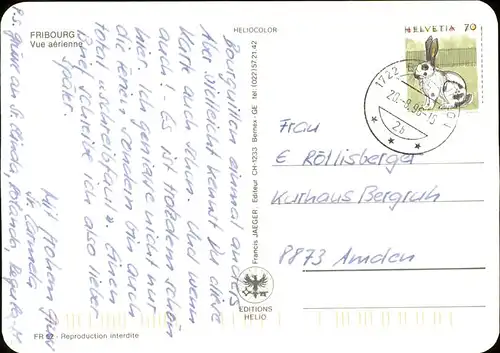 FRIBOURG
Vue aérienne
HELIOCOLOR
HELVETIA 70
1722 BO
22.-8.96-15
2b
Bourguillon einmal anders
Aber vielleicht kennt Du diese
Karte auch schon. Und wenn
auch! - Es ist trotzdem schön
hier. Ich geniesse nicht nur
die Ferien, sondern bin auch
total "schreibfaul". Einen
Brief schreibe ich also lieber
später.
Mit frohem Gruss
Sr. Carmela
P.S. Grüsse an Sr. Linda, Rolanda,
Frau
E Röllisberger
Kurhaus Bergruh
8873 Amden
Francis JAEGER, Editeur CH-1233 Bernex-GE Tel (022) 57.21.42
EDITIONS
HELIO
FR 52 - Reproduction interdite